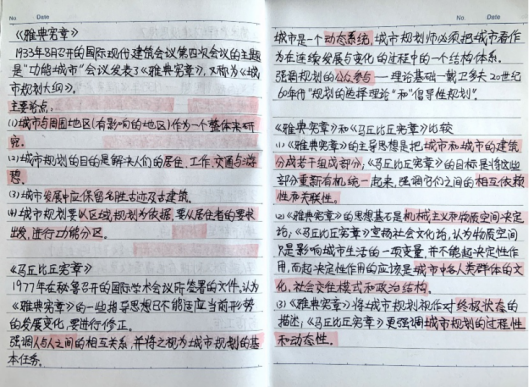 No. Date
《雅典宪章》
1933年8月召开的国际现代建筑会议第四次会议的主题
是“功能城市”会议发表了《雅典宪章》,又称为《城
市规划大纲》。
主要论点:
(1)城市与周围地区(有影响的地区)作为一个整体来研
究。
(2)城市规划的目的是解决人们的居住、工作、交通与游
憩。
(3)城市发展中应保留名胜古迹及古建筑。
(4)城市规划要以区域规划为依据,要从居住者的要求
出发,进行功能分区。
《马丘比丘宪章》
1977年在秘鲁召开的国际学术会议所签署的文件,认为
《雅典宪章》的一些指导思想已不能适应当前形势
的发展变化,要进行修正。
强调人与人之间的相互关系,并将之视为城市规划的基
本任务。
No. Date
城市是一个动态系统,城市规划师必须把城市看作
为在连续发展与变化的过程中的一个结构体系。
强调规划的公众参与——理论基础—戴卫多夫20世纪
60年代“规划的选择理论”和“倡导性规划”.
《雅典宪章》和《马丘比丘宪章》比较
(1)《雅典宪章》的主导思想是把城市和城市的建筑
分成若干组成部分,《马丘比丘宪章》的目标是将这些
部分重新有机统一起来,强调它们之间的相互依赖
性和关联性。
(2)《雅典宪章》的思想基石是机械主义和物质空间决定
论;《马丘比丘宪章》宣扬社会文化论,认为物质空间
只是影响城市生活的一项变量,并不能起决定性作
用,而起决定性作用的应该是城市中各人类群体的文
化、社会交往模式和政治结构.
(3)《雅典宪章》将城市规划视作对终极状态的
描述;《马丘比丘宪章》更强调城市规划的过程性
和动态性。